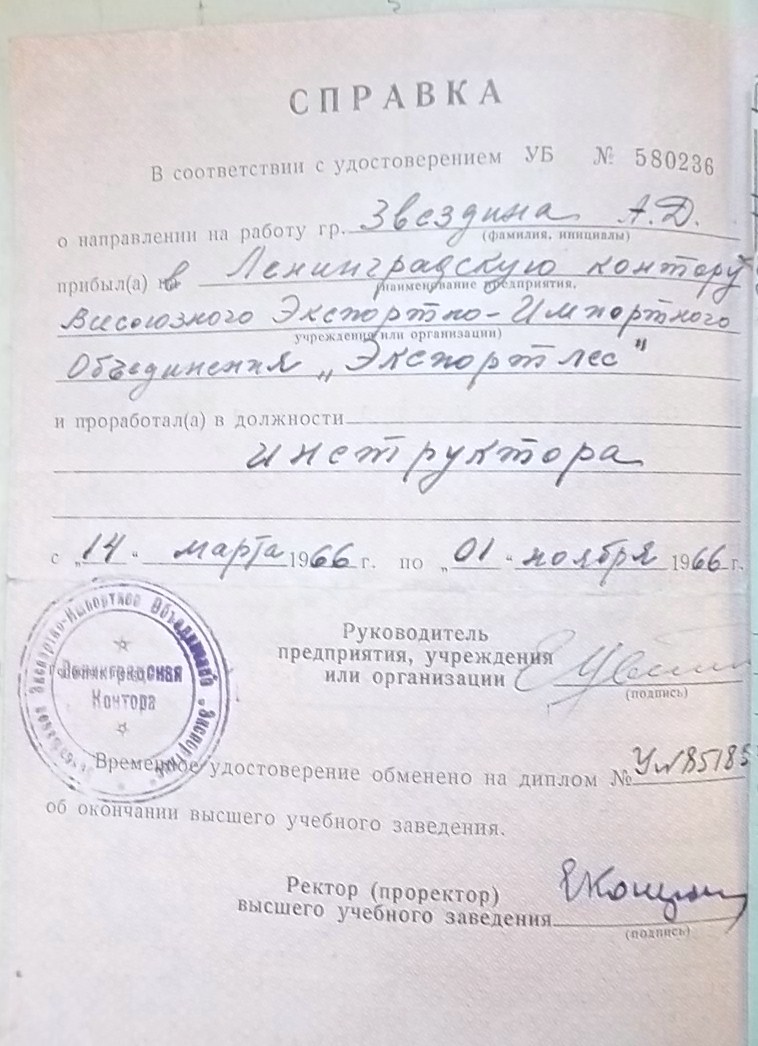 СПРАВКА
В соответствии с удостоверением УБ № 580236
о направлении на работу гр. Звездина А.Д.
(фамилия, инициалы)
прибыл(а) в Ленинградскую контору
(наименование предприятия,
Всесоюзного Экспортно-Импортного
учреждения или организации)
Объединения „Экспортлес"
и проработал(а) в должности
инструктора
с „14" марта 1966 г. по „01" ноября 1966 г.
Руководитель
предприятия, учреждения
или организации
(подпись)
Ленинградская
Контора
Временное удостоверение обменено на диплом № 85185
об окончании высшего учебного заведения.
Ректор (проректор)
высшего учебного заведения
(подпись)